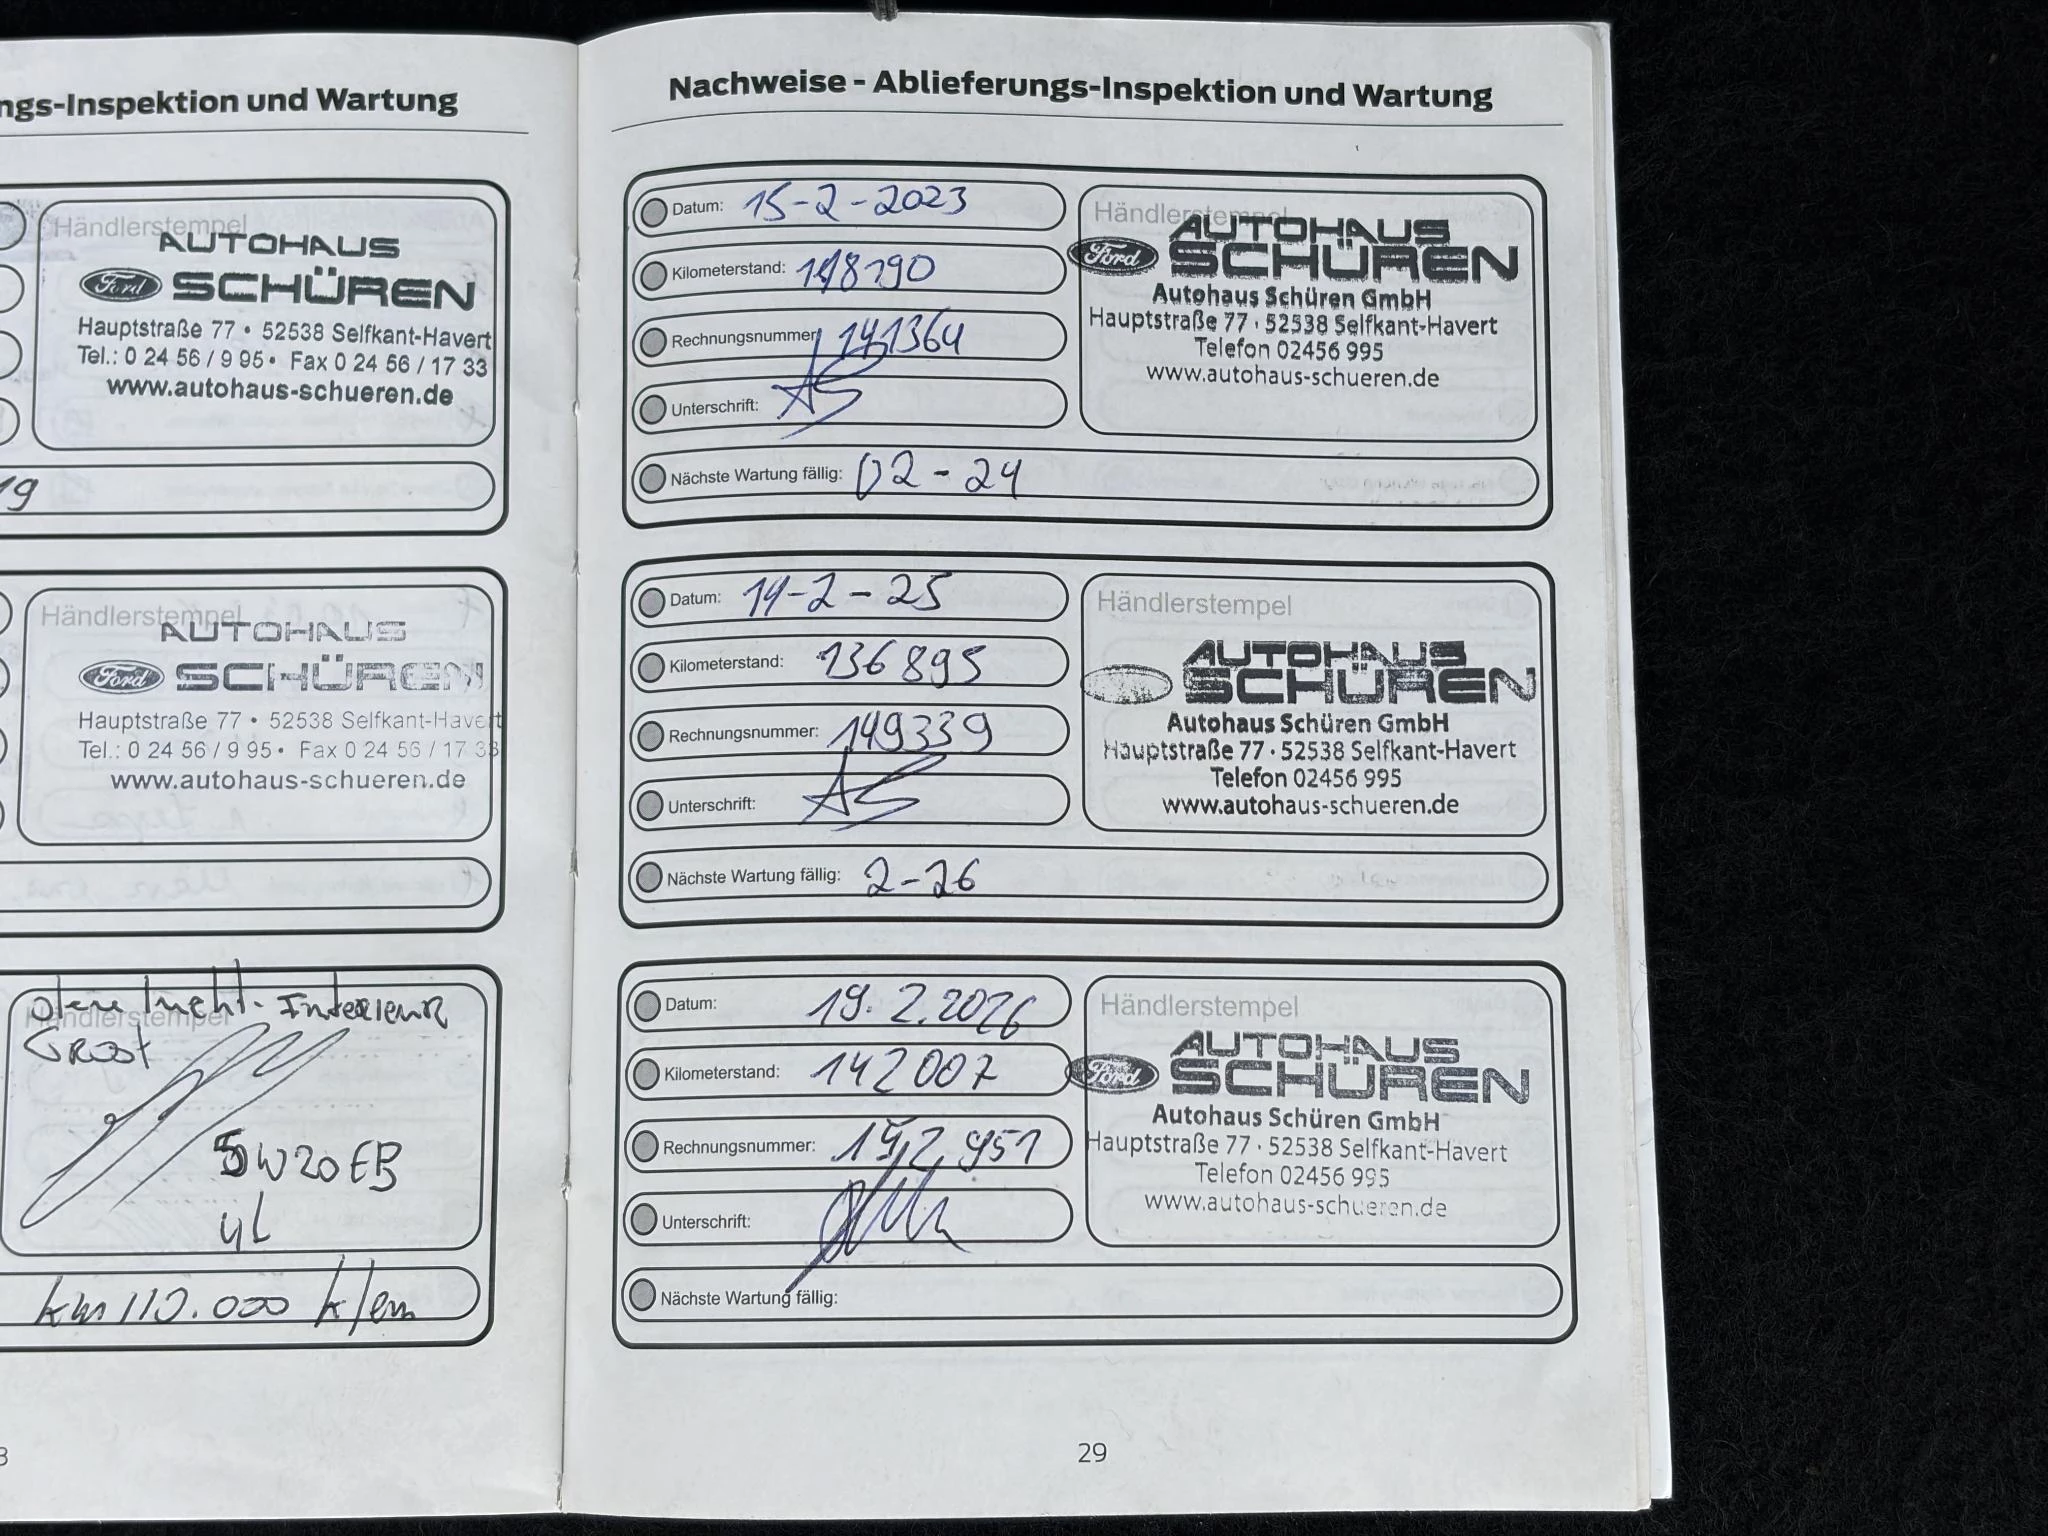 ngs-Inspektion und Wartung
Händlerstempel
AUTOHAUS
Ford SCHÜREN
Hauptstraße 77 • 52538 Selfkant-Havert
Tel.: 0 24 56 / 9 95 • Fax 0 24 56 / 17 33
www.autohaus-schueren.de
19
Händlerstempel
AUTOHAUS
Ford SCHÜREN
Hauptstraße 77 • 52538 Selfkant-Havert
Tel.: 0 24 56 / 9 95 • Fax 0 24 56 / 17 33
www.autohaus-schueren.de
Händlerstempel
5W20 EB
4L
km 110.000
Nachweise - Ablieferungs-Inspektion und Wartung
Datum: 15-2-2023
Händlerstempel
AUTOHAUS
Ford SCHÜREN
Autohaus Schüren GmbH
Hauptstraße 77 · 52538 Selfkant-Havert
Telefon 02456 995
www.autohaus-schueren.de
Kilometerstand: 118190
Rechnungsnummer 141364
Unterschrift: AS
Nächste Wartung fällig: 02-24
Datum: 14-2-25
Händlerstempel
AUTOHAUS
SCHÜREN
Autohaus Schüren GmbH
Hauptstraße 77 · 52538 Selfkant-Havert
Telefon 02456 995
www.autohaus-schueren.de
Kilometerstand: 136895
Rechnungsnummer: 149339
Unterschrift: AS
Nächste Wartung fällig: 2-26
Datum: 19.2.2026
Händlerstempel
AUTOHAUS
Ford SCHÜREN
Autohaus Schüren GmbH
Hauptstraße 77 · 52538 Selfkant-Havert
Telefon 02456 995
www.autohaus-schueren.de
Kilometerstand: 142007
Rechnungsnummer: 152951
Unterschrift:
Nächste Wartung fällig:
29